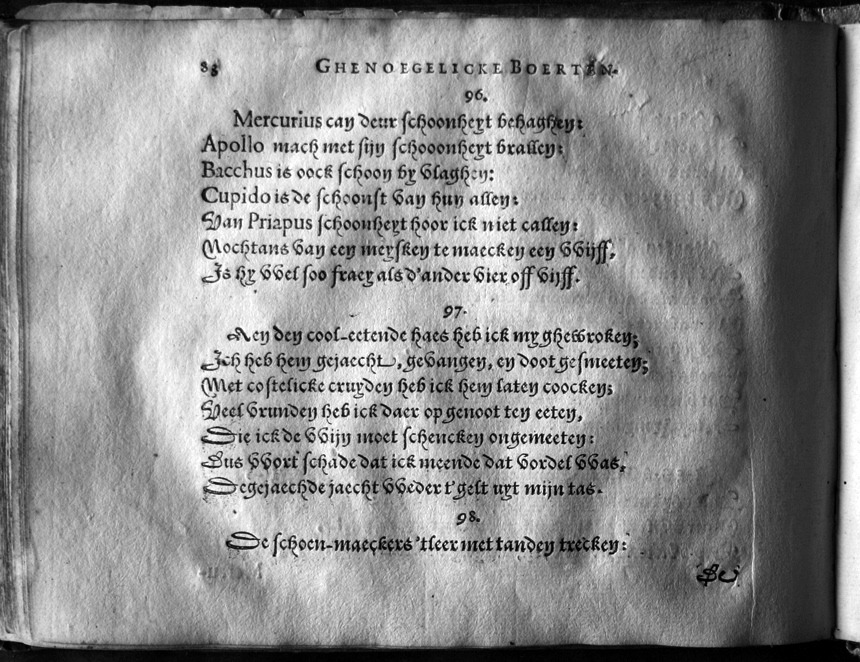 88
GHENOEGELICKE BOERTEN.
96.
Mercurius can deur schoonheyt behaghen:
Apollo mach met sijn schooonheyt brallen:
Bacchus is oock schoon by vlaghen:
Cupido is de schoonst van hun allen:
Van Priapus schoonheyt hoor ick niet callen:
Nochtans van een meysken te maecken een vvijff,
Is hy vvel soo fraey als d'ander vier off vijff.
97.
Aen den cool-eetende haes heb ick my ghewroken;
Ich heb hem gejaecht, gevangen, en doot gesmeeten;
Met costelicke cruyden heb ick hem laten coocken;
Veel vrunden heb ick daer op genoot ten eeten,
Die ick de vvijn moet schencken ongemeeten:
Dus vvort schade dat ick meende dat vordel vvas,
De gejaechde jaecht vveder t'gelt uyt mijn tas.
98.
De schoen-maeckers 'tleer met tanden trecken: